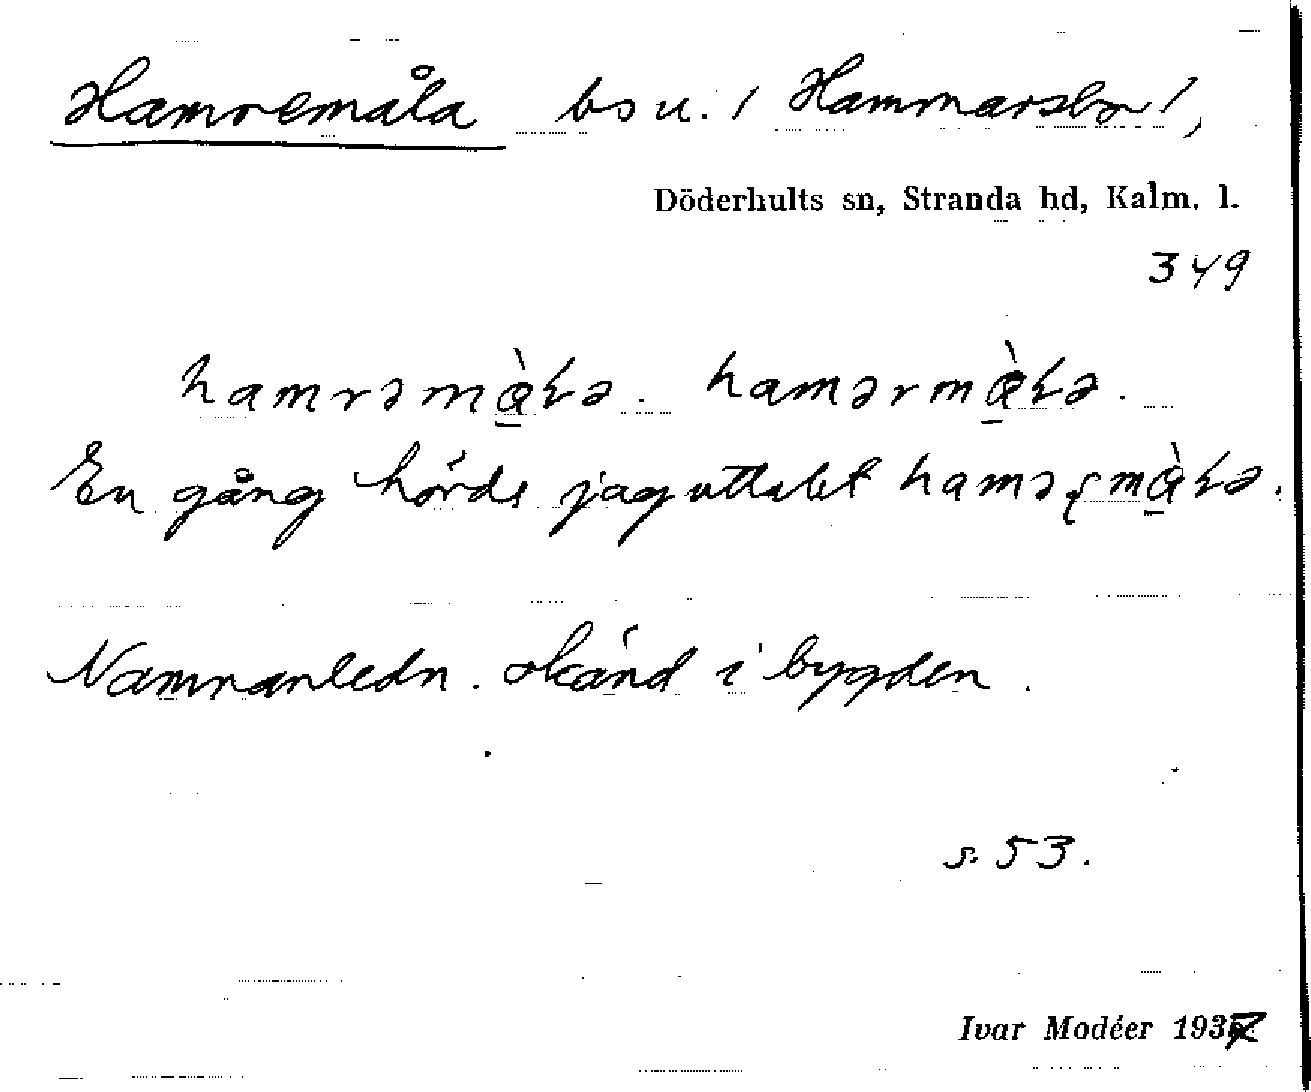 Hamremåla bs u. / Hammarsbo /,
Döderhults sn, Stranda hd, Kalm. l.
349
hamrəmὰ̱ɫə. hamərmὰ̱ɫə.
En gång hörde jag uttalet haməɽmὰ̱ɫə.
Namnanledn. okänd i bygden.
s. 53.
Ivar Modéer 1937